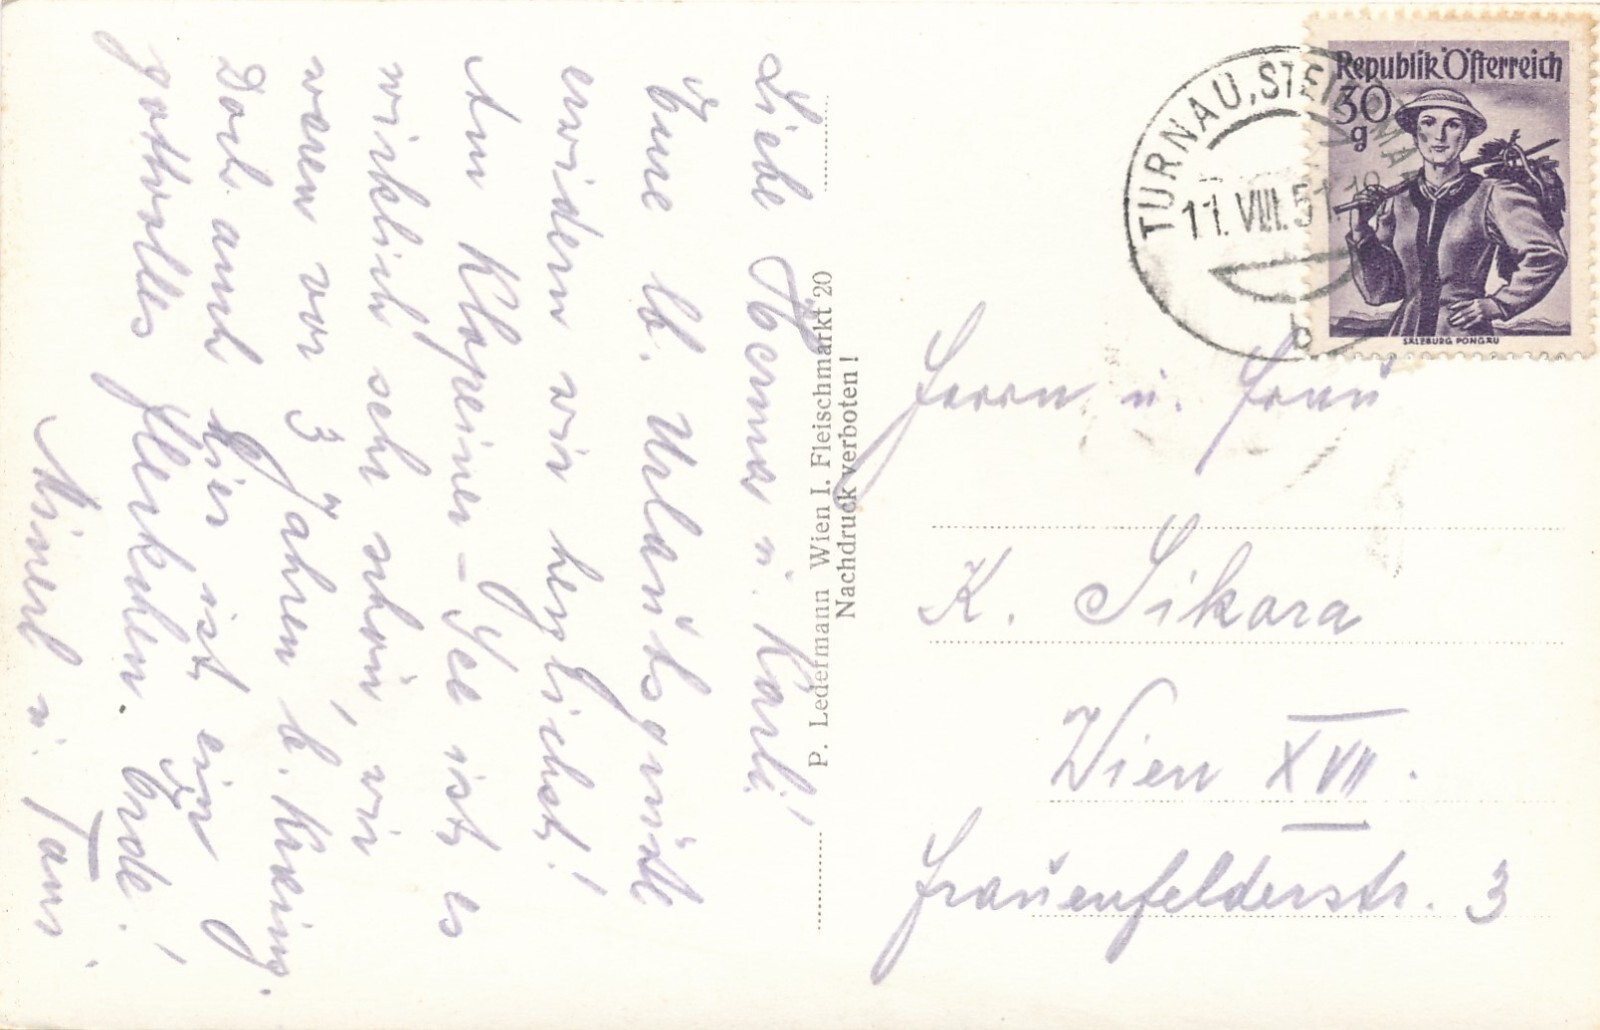 Liebe Herma u. Karli!
Eure lb. Urlaubsgrüße
erwidern wir herzlichst!
Am Klopeiner-See ist es
wirklich sehr schön, wir
waren vor 3 Jahren b.
Doch auch hier ist ein
gottvolles Fleckchen Erde!
u.
P. Ledermann Wien I. Fleischmarkt 20
Nachdruck verboten!
Republik Österreich
30
g
SALZBURG PONGAU
TURNAU, STEIERMARK
11. VIII. 51 18
b
Herrn u. Frau
K. Sikora
Wien XVII.
Frauenfelderstr. 3